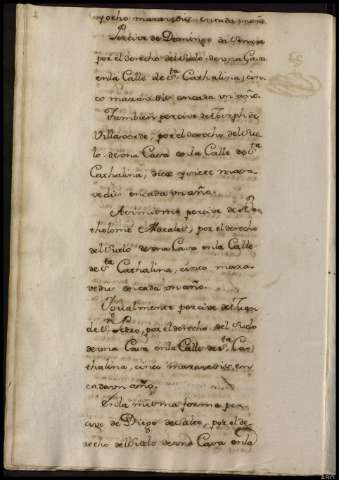 y ocho maravedis en cada un año.
Percive de Domingo de
por el derecho del Suelo de una Casa
en la Calle de S.ta Cathalina, cin-
co maravedis en cada un año.
Tambien percive de Joseph de
Villaverde, por el derecho del Sue-
lo de una Casa en la Calle de S.ta
Cathalina, diez y nueve mara-
vedis en cada un año.
Asimismo percive de Bar-
tholome Morales, por el derecho
del Suelo de una Casa en la Calle
de S.ta Cathalina, cinco mara-
vedis en cada un año.
Igualmente percive de Juan
de por el derecho del Suelo
de una Casa en la Calle de S.ta Ca-
thalina, cinco maravedis en
cada un año.
En la misma forma per-
cive de Diego de por el de-
recho del Suelo de una Casa en la